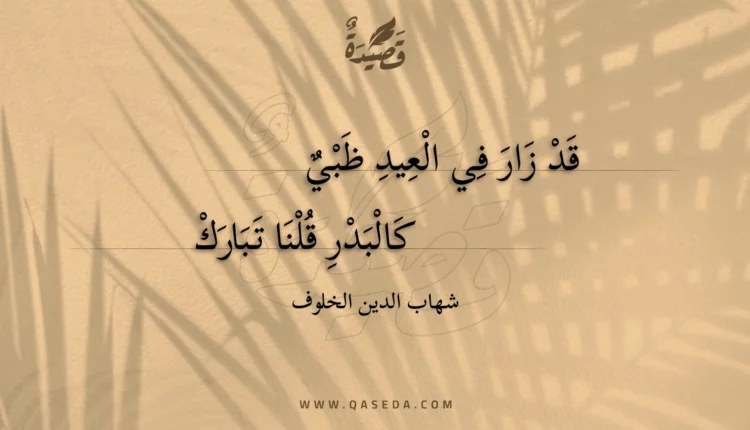 قَصِيْدَةٌ
قَدْ زَارَ فِي الْعِيدِ ظَبْيٌ
كَالْبَدْرِ قُلْنَا تَبَارَكْ
شهاب الدين الخلوف
WWW.QASEDA.COM